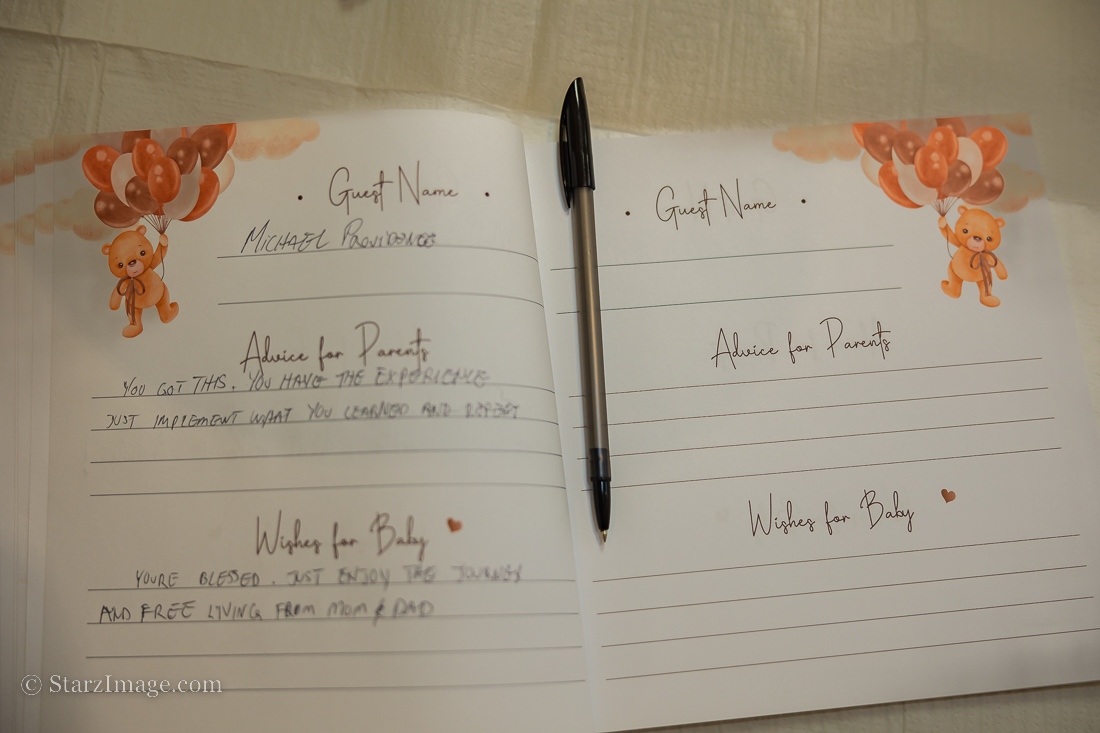 • Guest Name •
MICHAEL PROVIDENCE
Advice for Parents
YOU GOT THIS. YOU HAVE THE EXPERIENCE
JUST IMPLEMENT WHAT YOU LEARNED AND REPEAT
Wishes for Baby
YOURE BLESSED. JUST ENJOY THE JOURNEY
AND FREE LIVING FROM MOM & DAD
• Guest Name •
Advice for Parents
Wishes for Baby
© StarzImage.com